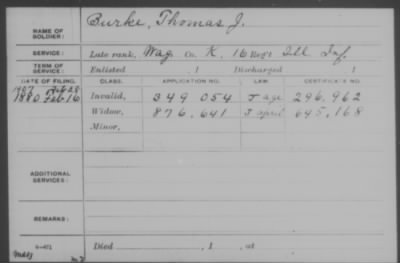 NAME OF SOLDIER: Burke, Thomas J.
SERVICE: Late rank, Wag Co. K, 16 Reg't Ill Inf.
TERM OF SERVICE: Enlisted , 1 Discharged , 1
DATE OF FILING. CLASS. APPLICATION NO. LAW. CERTIFICATE NO.
1880 Feb 16 Invalid, 349 054 296,962
Widow, 876,641 645,168
Minor,
ADDITIONAL SERVICES:
REMARKS:
Died , 1 , at